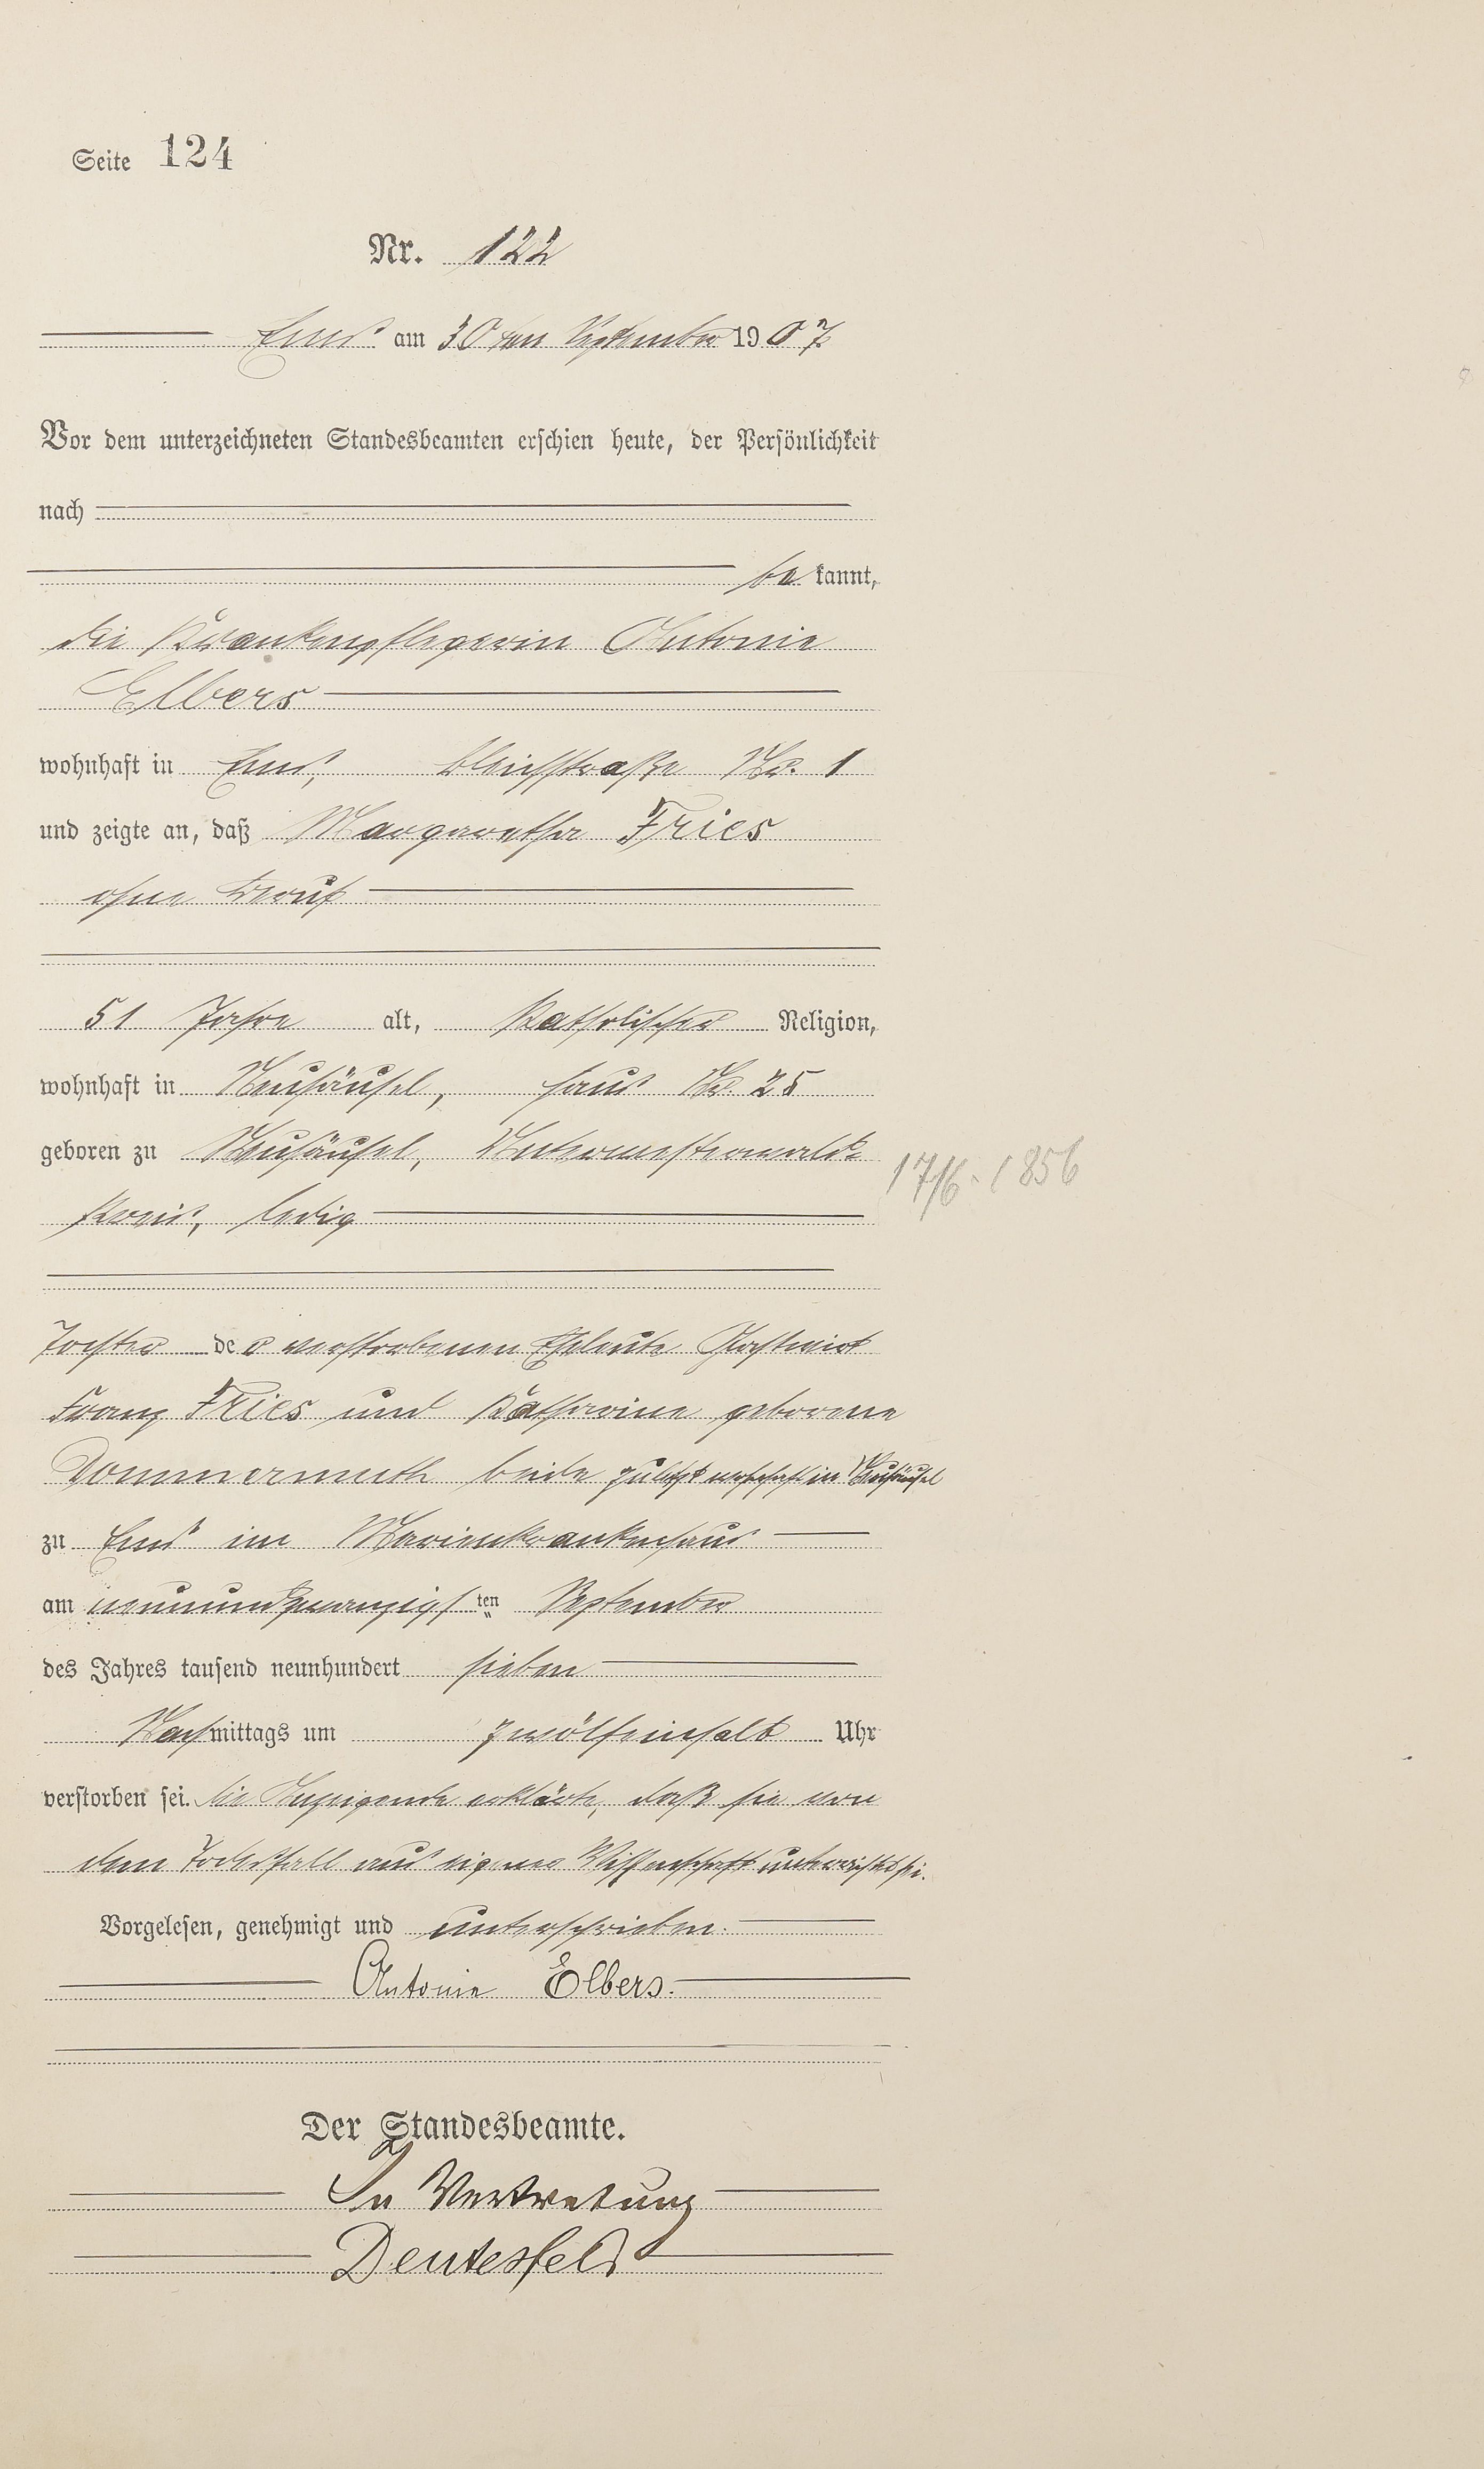 Seite 124
Nr. 122
Ems am 30ten September 1907
Vor dem unterzeichneten Standesbeamten erschien heute, der Persönlichkeit
nach
be kannt,
die Krankenpflegerin Antonie
Elbers
wohnhaft in Ems, Bleichstraße No. 1
und zeigte an, daß Margaretha Fries
ohne Beruf
51 Jahre alt, Katholischer Religion,
wohnhaft in Neuhäusel, Haus No. 25
geboren zu Neuhäusel, Unterwesterwald-
17/6. 1856
kreis, ledig
Tochter der verstorbenen Eheleute Gastwirt
Franz Fries und Katharine geborene
Dommermuth beide zuletzt wohnhaft in Neuhäusel
zu Ems im Marienkrankenhaus
am neunundzwanzigsten September
des Jahres tausend neunhundert sieben
Nachmittags um zwölfeinhalb Uhr
verstorben sei. Die Anzeigende erklärte, daß sie von
dem Todesfall aus eigener Wissenschaft unterrichtet sei.
Vorgelesen, genehmigt und unterschrieben.
Antonie Elbers.
Der Standesbeamte.
In Vertretung
Deutesfeld